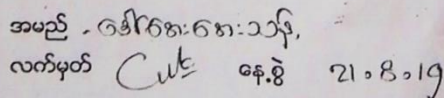 အမည် . ဒေါ်အေးအေးသန်း,
လက်မှတ် နေ့စွဲ 21.8.19